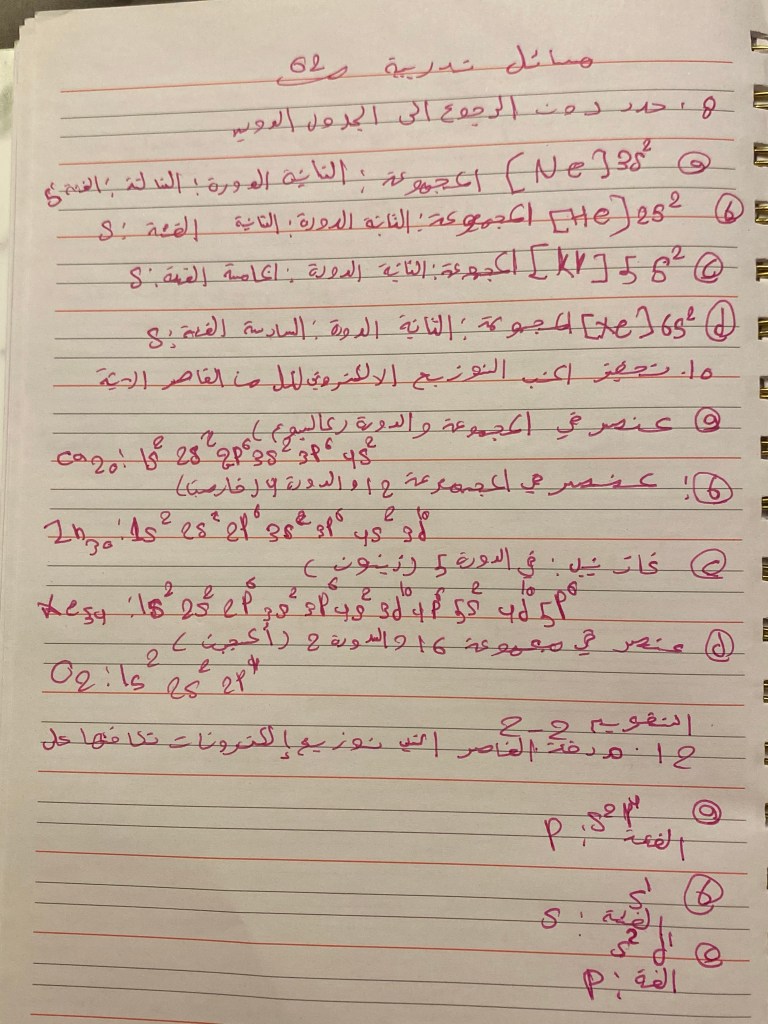 مسائل تدريبية ص 62
8. حدد دون الرجوع الى الجدول الدوري
a [Ne]3s² المجموعة: الثانية الدورة: الثالثة: الفئة: s
b [He]2s² المجموعة: الثانية الدورة: الثانية الفئة: s
c [Kr]5s² المجموعة: الثانية الدورة: الخامسة الفئة: s
d [Xe]6s² المجموعة: الثانية الدورة: السادسة الفئة: s
10. تحفيز اكتب التوزيع الالكتروني لكل من العناصر
a عنصر في المجموعة والدورة (كالسيوم)
Ca₂₀: 1s² 2s² 2p⁶ 3s² 3p⁶ 4s²
b: عنصر في المجموعة 12 والدورة 4 (خارصين)
Zn₃₀: 1s² 2s² 2p⁶ 3s² 3p⁶ 4s² 3d¹⁰
c غاز نبيل: في الدورة 5 (زينون)
Xe₅₄: 1s² 2s² 2p⁶ 3s² 3p⁶ 4s² 3d¹⁰ 4p⁶ 5s² 4d¹⁰ 5p⁶
d عنصر في مجموعة 16 والدورة 2 (أكسجين)
O₂: 1s² 2s² 2p⁴
التقويم 2-2
12. العناصر التي توزيع إلكترونات تكافئها على
a s²p⁴
الفئة: p
b s¹
الفئة: s
s²d¹
الفئة: p